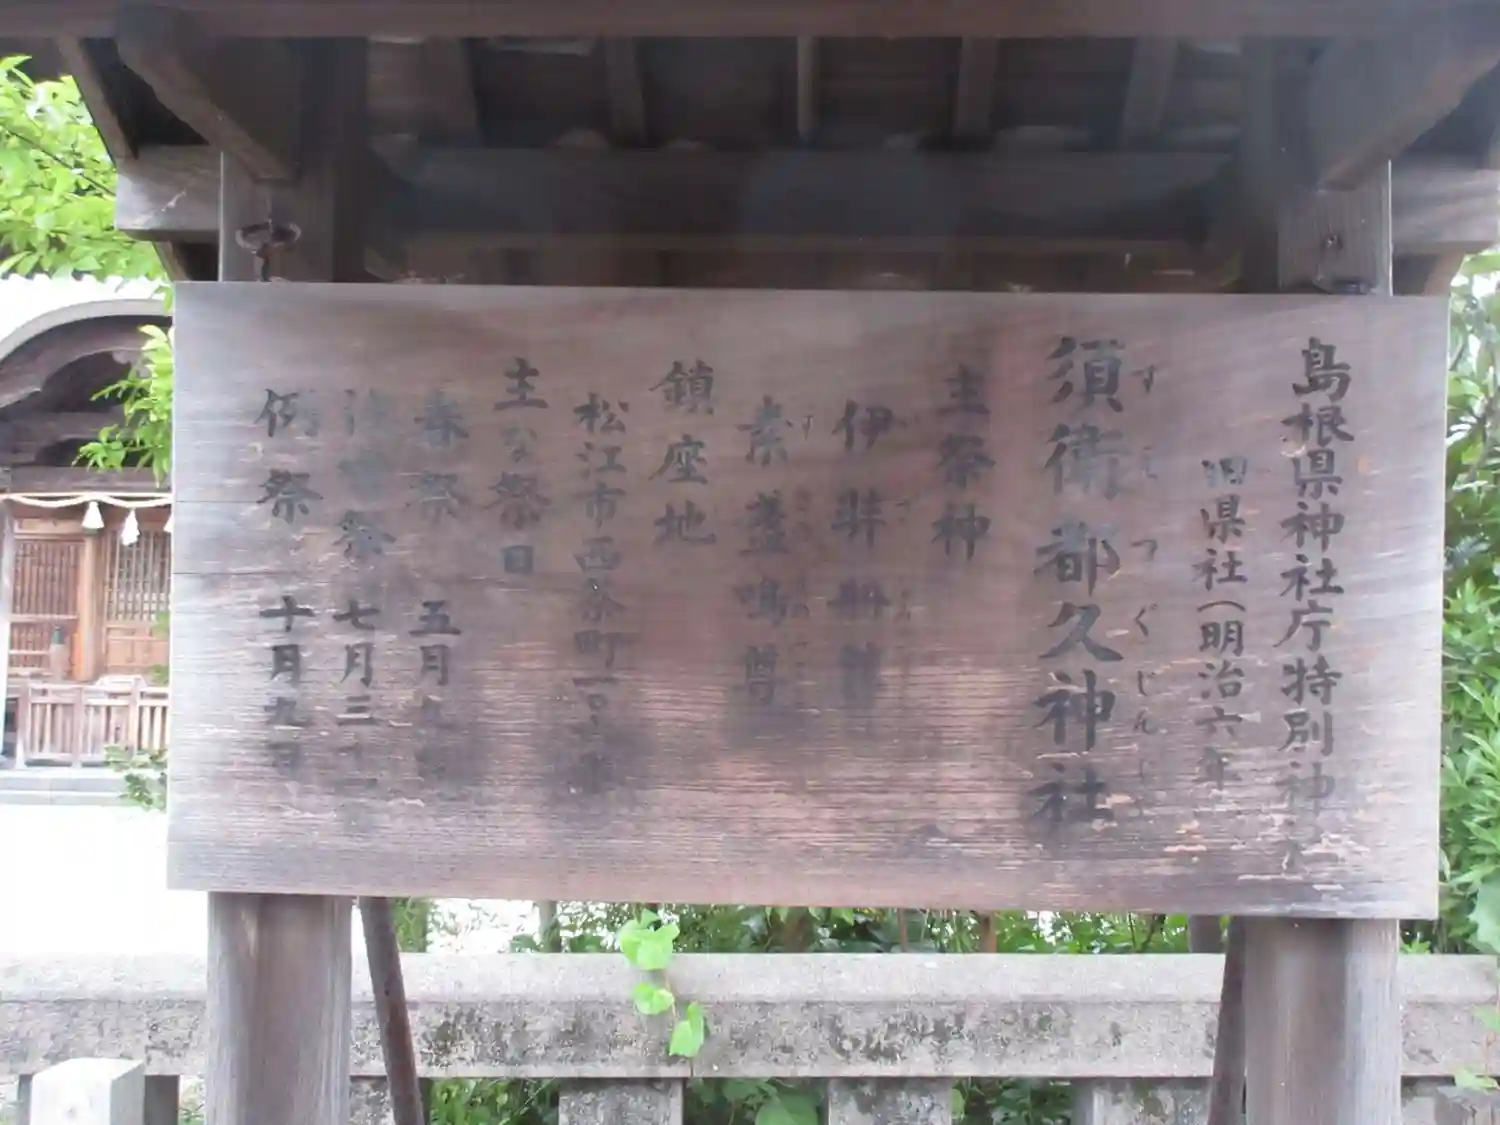 島根県神社庁特別神社
旧県社(明治六年
すえつぐじんじゃ
須衛都久神社
主祭神
伊弉冊尊
素盞嗚尊
鎮座地
松江市西茶町
主な祭日
春祭 五月九日
祭 七月三十
例祭 十月九日